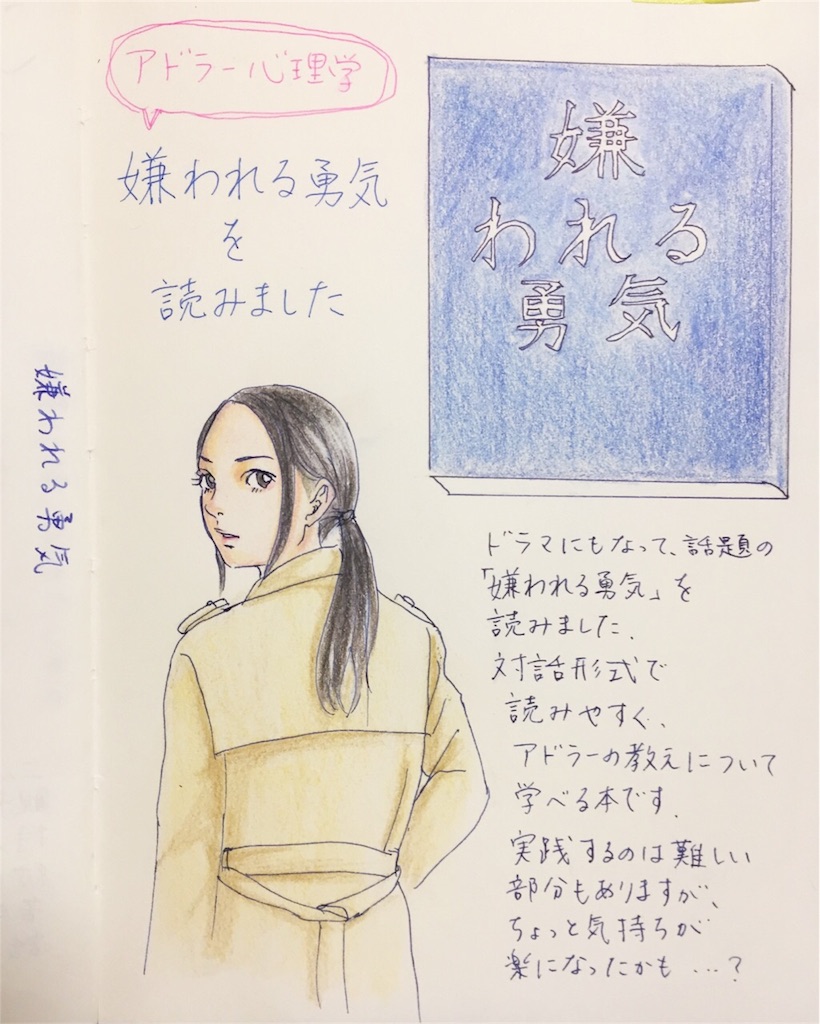 アドラー心理学
嫌われる勇気
を
読みました
嫌
われる
勇気
嫌われる勇気
ドラマにもなって、話題の
「嫌われる勇気」を
読みました。
対話形式で
読みやすく、
アドラーの教えについて
学べる本です。
実践するのは難しい
部分もありますが、
ちょっと気持ちが
楽になったかも…?